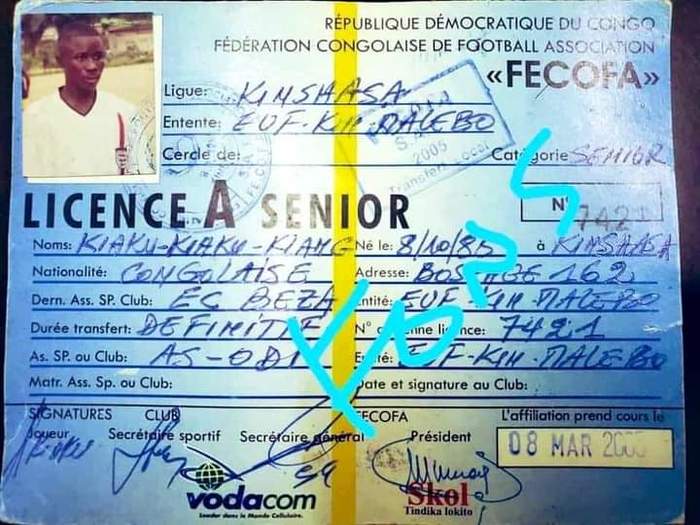 RÉPUBLIQUE DÉMOCRATIQUE DU CONGO
FÉDÉRATION CONGOLAISE DE FOOTBALL ASSOCIATION
«FECOFA»
Ligue: KINSHASA
Entente: EUF-KIN-MALEBO
Cercle de:
Catégorie SENIOR
2005
Transfert Local
LICENCE A SENIOR
N° 7421
Noms: KIAKU-KIAKU-KIANG Né le: 8/10/85 à KINSHASA
Nationalité: CONGOLAISE Adresse: 162
Dern. Ass. SP. Club: EC BEZA Entité: EUF-KIN-MALEBO
Durée transfert: DEFINITIF N° licence: 7421
As. SP. ou Club: AS-ODI Entité: EUF-KIN-MALEBO
Matr. Ass. Sp. ou Club: Date et signature au Club:
SIGNATURES CLUB FECOFA L'affiliation prend cours le
Joueur Secrétaire sportif Secrétaire général Président 08 MAR
vodacom
Leader dans le Monde Cellulaire.
Skol
Tindika lokito